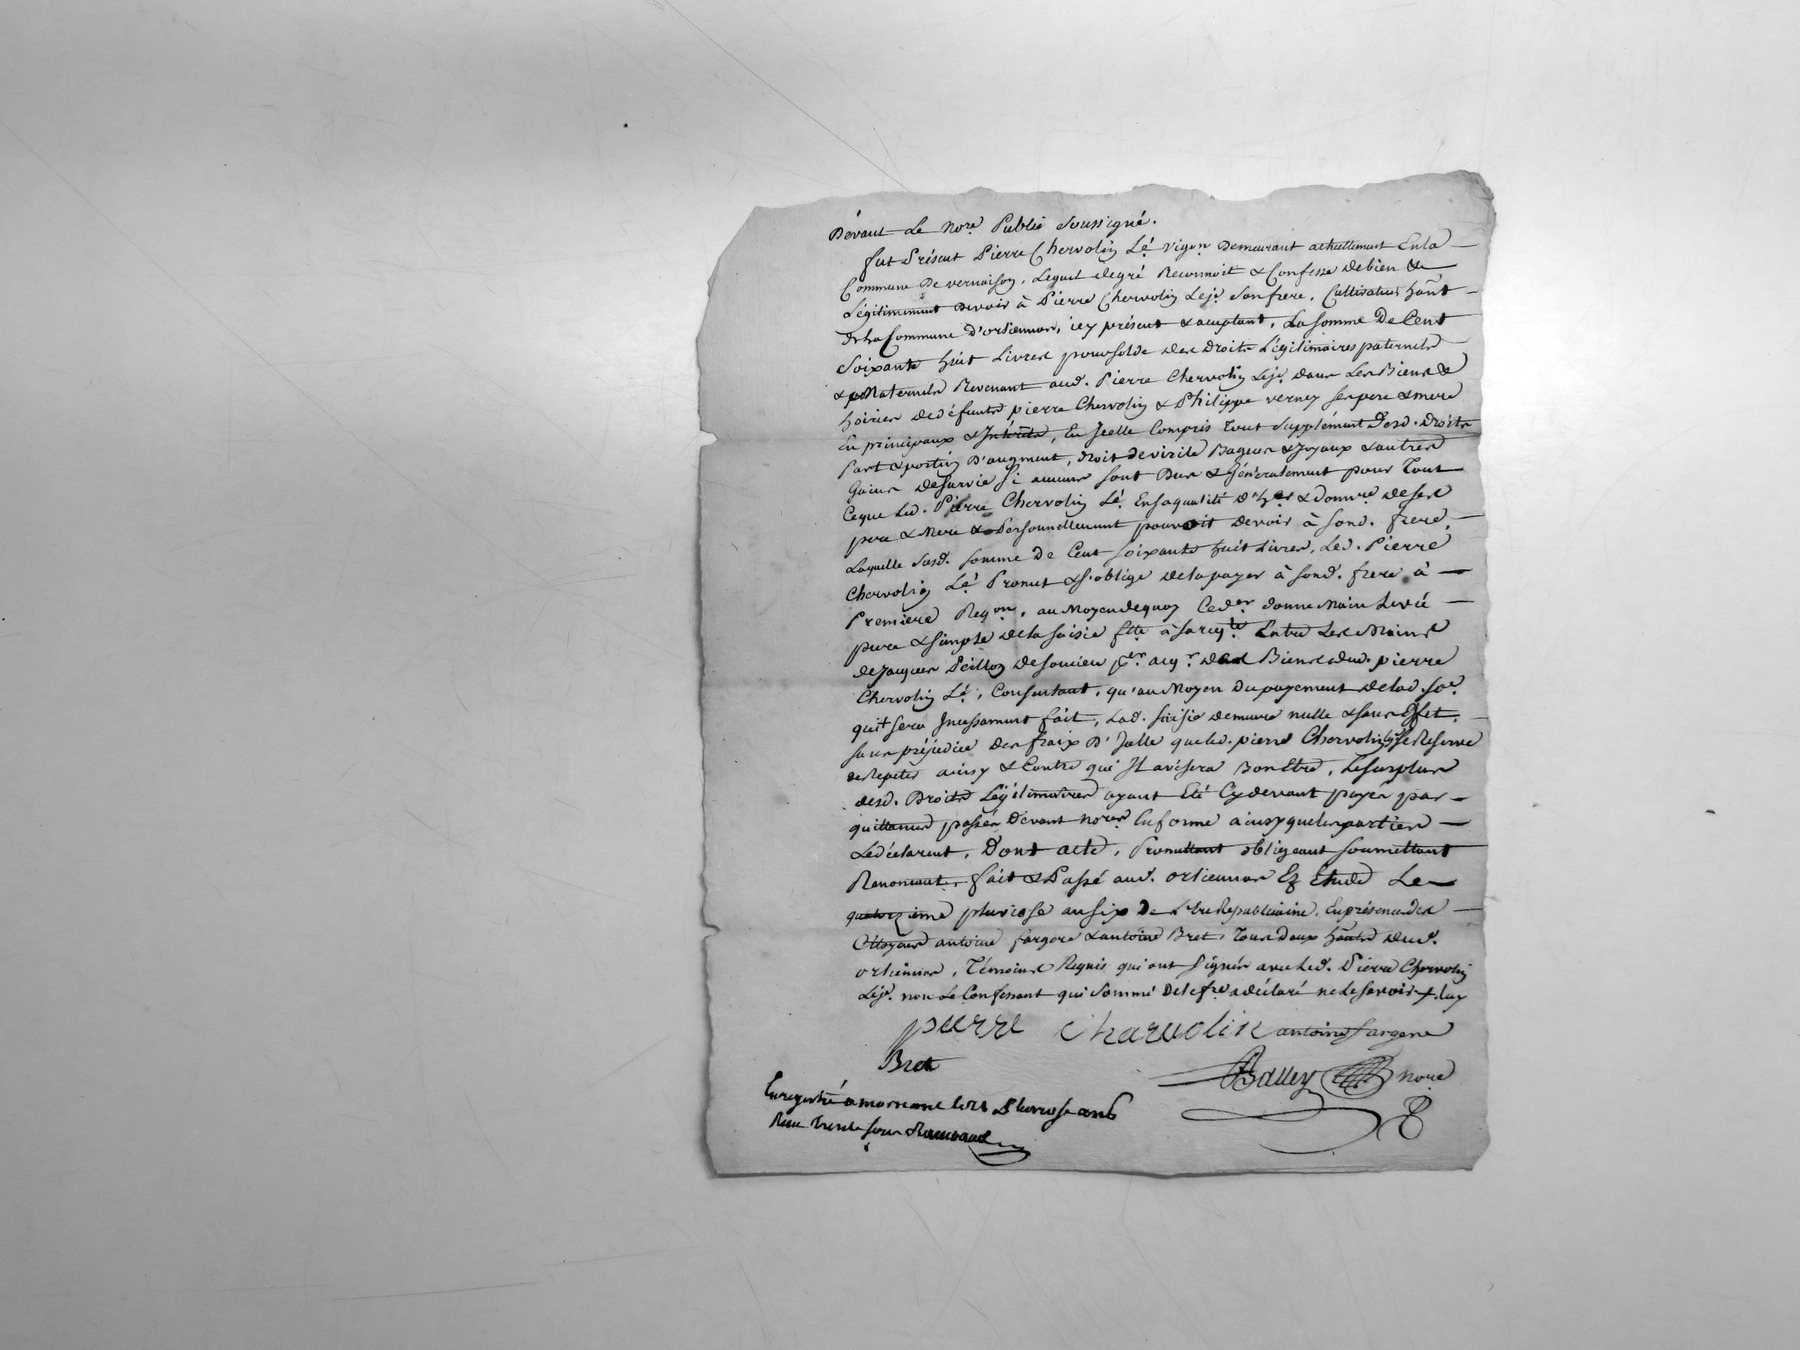 Dévant Le Nore Public Soussigné.
fut Présent Pierre Chervolin Lé. vigon Demeurant actuellement Enla
Commune De vernaison, Lequel degré Reconnoit & Confesse debien &
Légitimement devoir à Pierre Chervolin Leje. Sonfrere, Cultivateur hãnt
dela Commune d'orlienas, icy présent & aceptant, La Somme De Cent
Soixante huit Livres poursolde des Droits Légitimaires paternels
& Maternels Revenant aud. Pierre Chervolin Leje. dans Les Biens &
hoiries dedéfunts pierre Chervolin & Philippe verney ses pere & mere
En principaux & Intérêts, En Jcelle Compris Tout Supplément Desd. Droits
Part & portion D'augment, droit devirile Bagues & Joyaux & autres
Gains desurvie Si aucuns Sont Dus & Généralement pour Tout
Ceque Led. Pierre Chervolin Lé. Ensaqualité d'her & donnre. deses
pere & Mere & Personnellement pouvoit devoir à Sond. frere,
Laquelle Susd. Somme de Cent Soixante huit Livres, Led. Pierre
Chervolin Lé. Promet & S'oblige delapayer à Sond. frere à
Premiere Reqon., au Moyendequoy Ceder. donne Main Levée
pure & Simple dela Saisie ftte à sareqte. Entre Les Mains
de Jacques Peillon deSoucieu per. aqr. des Biens dud. pierre
Chervolin Lé, Consentant, qu'au Moyen du payement delad. Soe.
quit Sera Incessament fait, Lad. Saisie demeure nulle & Sans Effet,
Sans préjudice des fraix D'Jcelle queled. pierre Chervolin Se Reserve
deRepeter ainsy & Contre qui Jl avisera Bon Etre, Lesurplus
desd. Droits Légitimaires ayant Eté Cydevant payés par
quittances passées Devant Nores Enforme ainsyquelespartiers
Ledéclarent, Dont acte, Promettant obligeant Soumettant
Renoncant, fait & Passé aud. orlienas Ez Etude Le
quatorzieme pluviose ansix De L'Ere Republicaine, Enprésencedes
Citoyens antoine fargere & antoine Bret, Tous Deux hãnts dud.
orlienas, Témoins Requis qui ont Signés avec Led. Pierre Chervolin
Leje. non Le Confessant qui Sommé Delefre. adéclaré ne Le Savoir
pierre Charvolin antoine fargere
Bret
Balley Nore
Enregistré a mornant le 21 Pluviose an 6
Recu trente sous